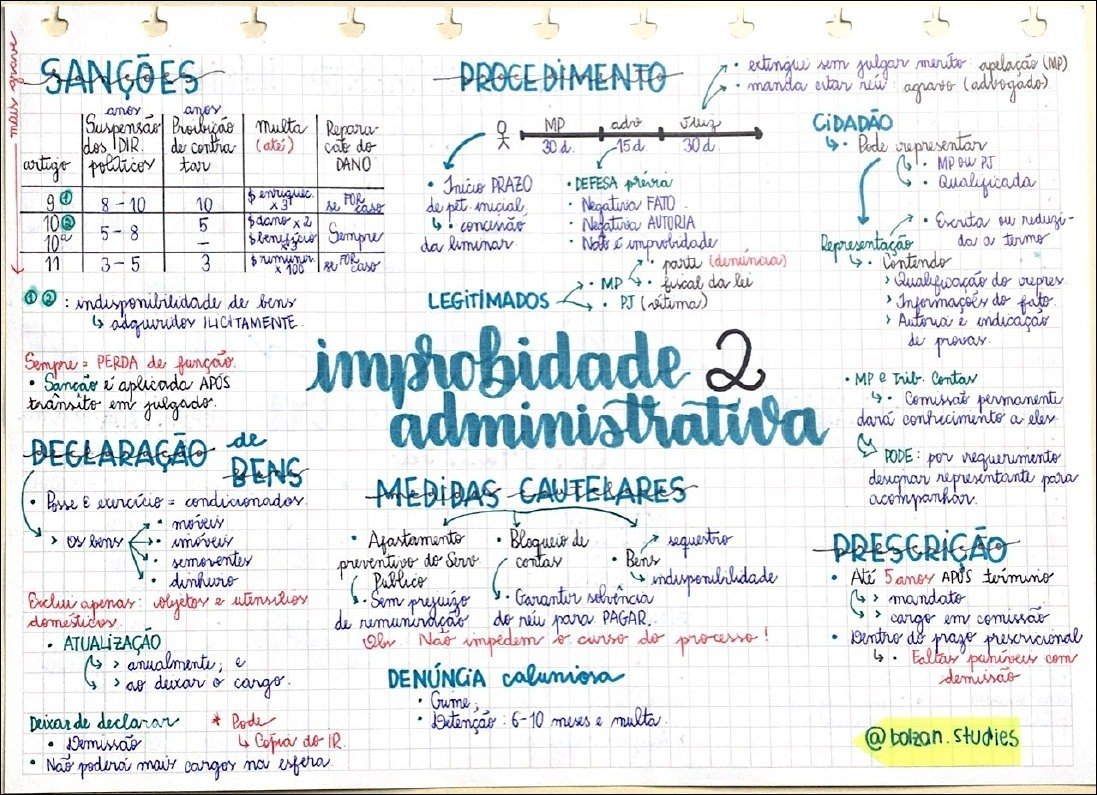 mais grave
SANÇÕES
artigo
anos
Suspensão
dos DIR.
políticos
anos
Proibição
de contra
tar
Multa
(até)
Repara-
ção do
DANO
9 ① 8 - 10 10 $ enriquec. x3 se FOR caso
10 ② 5 - 8 5 $ dano x 2 Sempre
10a — $ benefício x3
11 3 - 5 3 $ remuner x 100 se FOR caso
① ② : indisponibilidade de bens
↳ adquiridos ILICITAMENTE.
Sempre = PERDA de função.
• Sanção é aplicada APÓS
trânsito em julgado.
DECLARAÇÃO de
BENS
• Posse E exercício = condicionados.
> Os bens
• móveis
• imóveis
• semoventes
• dinheiro
Exclui apenas: objetos e utensílios
domésticos.
• ATUALIZAÇÃO
> anualmente; e
> ao deixar o cargo.
Deixar de declarar
• Demissão
• Não poderá mais cargos na esfera
* Pode
↳ Cópia do IR.
PROCEDIMENTO
• extingue sem julgar mérito apelação (MP)
• manda citar réu agravo (advogado).
MP adv Juiz
30 d. 15 d. 30 d.
• Início PRAZO
de pet. inicial
↳ • concessão
da liminar
• DEFESA prévia
• Negativa FATO.
• Negativa AUTORIA
• Não é improbidade
LEGITIMADOS
• MP
• parte (denúncia)
• fiscal da lei
• PJ (vítima)
improbidade 2
administrativa
MEDIDAS CAUTELARES
• Afastamento
preventivo do Serv
Público
• Sem prejuízo
de remuneração
• Bloqueio de
contas
• Garantir solvência
do réu para PAGAR.
• Bens
sequestro
indisponibilidade
Obs Não impedem o curso do processo!
DENÚNCIA caluniosa
• Crime;
• Detenção: 6-10 meses e multa.
CIDADÃO
↳ • Pode representar
• MP ou PJ
• Qualificada
Representação
• Escrita ou reduzi-
da a termo
↳ • Contendo
> Qualificação do repres.
> Informações do fato.
> Autoria e indicação
de provas.
• MP e Trib. Contas
↳ • Comissão permanente
dará conhecimento a eles.
PODE: por requerimento
designar representante para
acompanhar.
PRESCRIÇÃO
• Até 5 anos APÓS término
> mandato
> cargo em comissão
• Dentro do prazo prescricional
↳ • Faltas puníveis com
demissão
@bolzan.studies